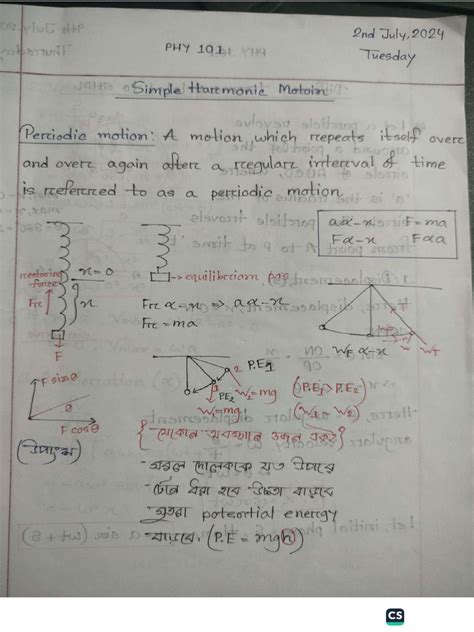 2nd July, 2024
PHY 191
Tuesday
Simple Harmonic Motoin
Periodic motion: A motion, which repeats itself over
and over again after a regular interval of time
is referred to as a periodic motion.
a∝-x F=ma
F∝-x F∝a
restoring force
x=0
Fr
x
F
→ equilibrium pos
Fr ∝ -x ⇒ a∝-x
Fr = ma
WF ∝-x
F sinθ
θ
F cosθ
(উপাংশ)
2 P.E1
1
PE2
W2=mg
W1=mg
(P.E1>P.E2)
(W1 = W2)
{-যেকোন অবস্থানে ওজন একই}
- সরল দোলককে যত উপরে
- টেনে ধরা হবে উচ্চতা বাড়বে
- সুতরাং potential energy
- বাড়বে. (P.E = mgh)
CS